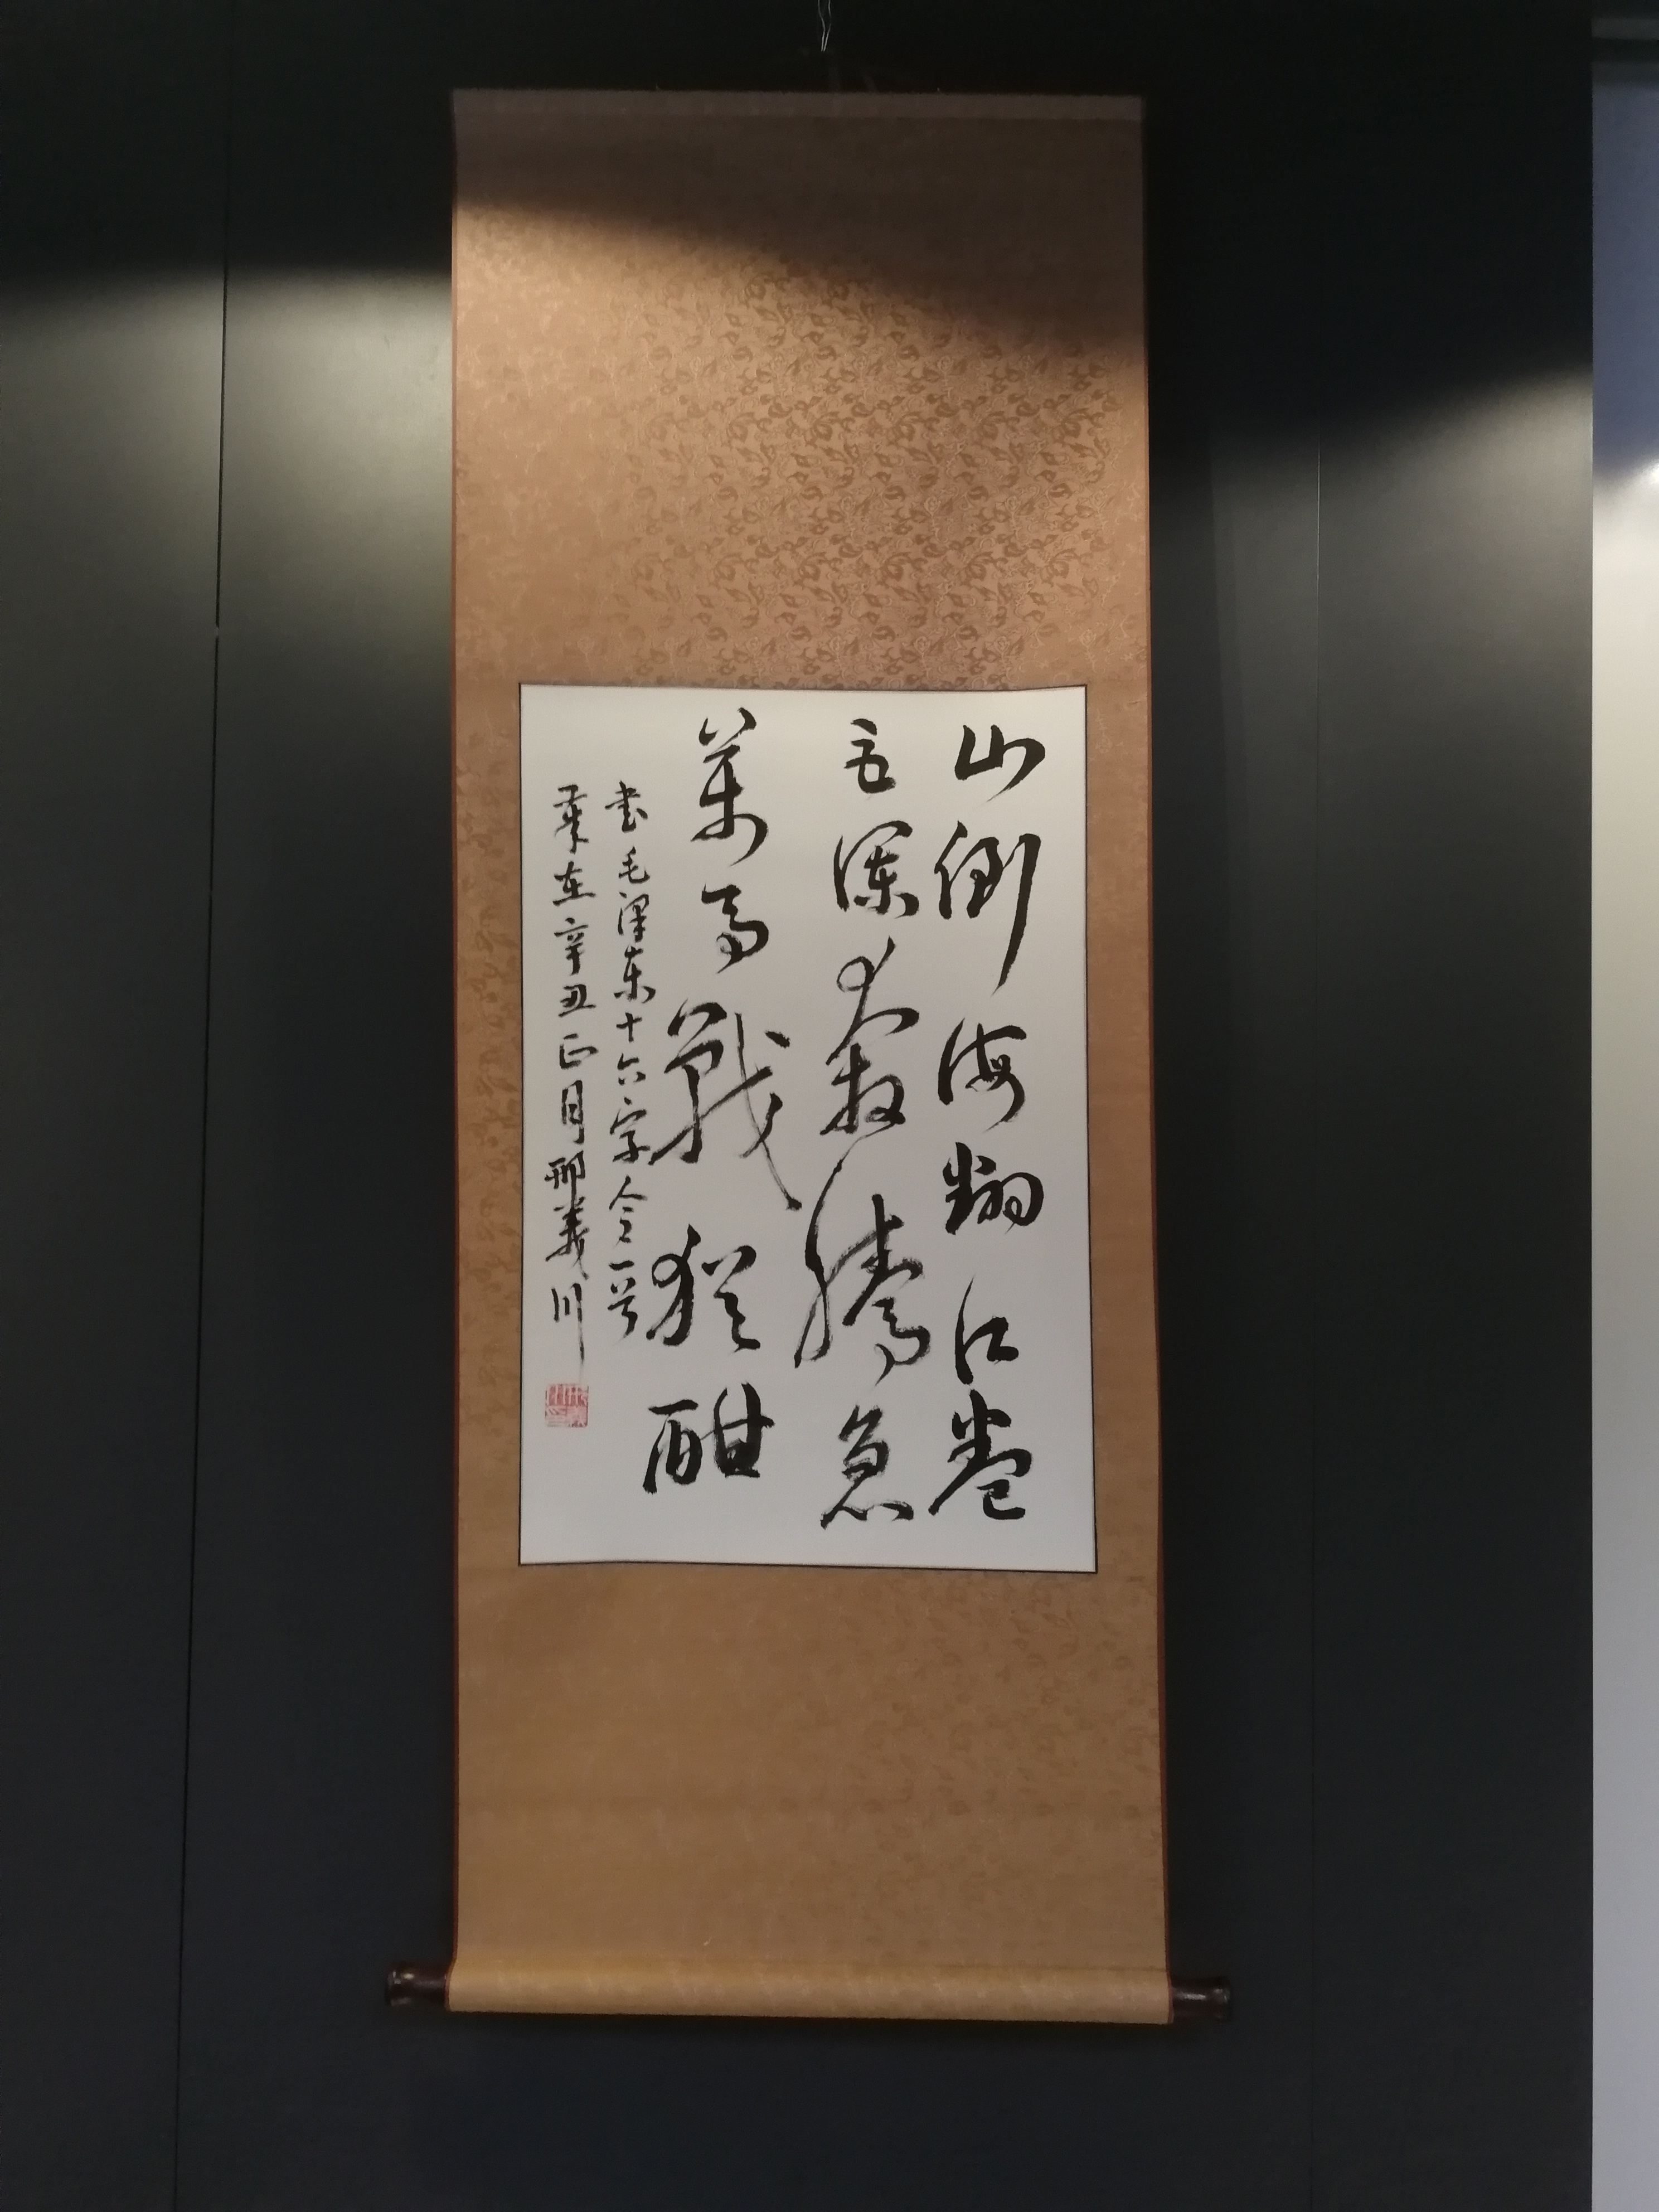 山倒海翻江卷
巨澜奔腾急
萬馬戰犹酣
书毛泽东十六字令一首
岁在辛丑正月邢義川